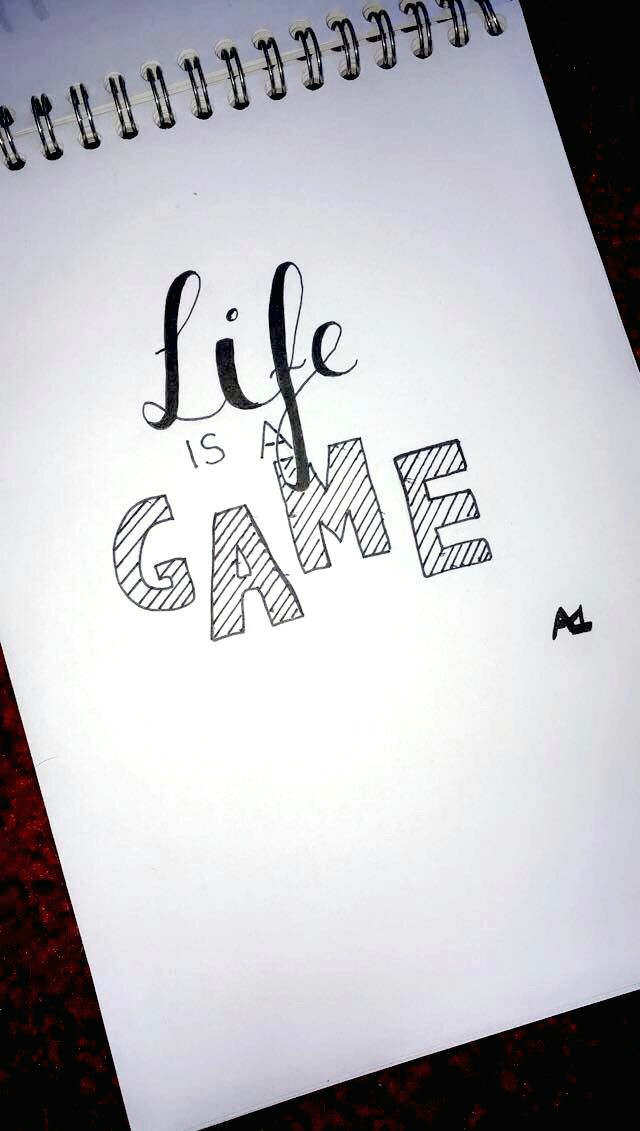 Life
IS A
GAME